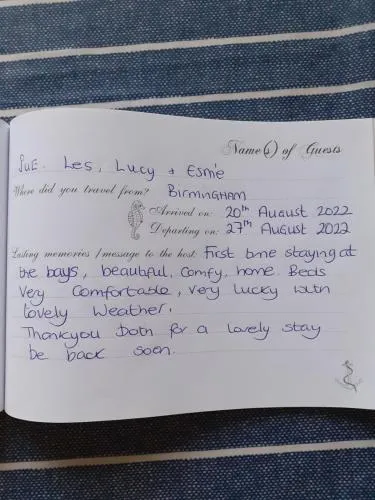 Name(s) of Guests
Sue. Les, Lucy + Esmé
Where did you travel from? Birmingham
Arrived on: 20th August 2022
Departing on: 27th August 2022
Lasting memories / message to the host: First time staying at
the bays, beautiful, comfy, home. Beds
Very Comfortable, very lucky with
lovely Weather.
Thankyou both for a lovely stay
be back soon.